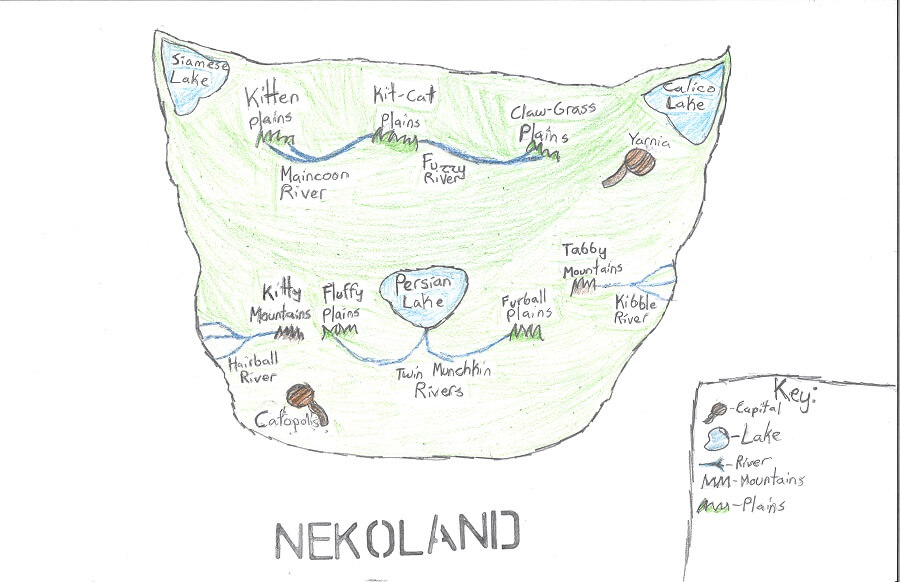 Siamese
Lake
Kitten
Plains
Kit-Cat
Plains
Claw-Grass
Plains
Calico
Lake
Yarnia
Maincoon
River
Fuzzy
River
Tabby
Mountains
Kibble
River
Persian
Lake
Kitty
Mountains
Fluffy
Plains
Furball
Plains
Hairball
River
Twin Munchkin
Rivers
Catopolis
Key:
-Capital
-Lake
-River
-Mountains
-Plains
NEKOLAND